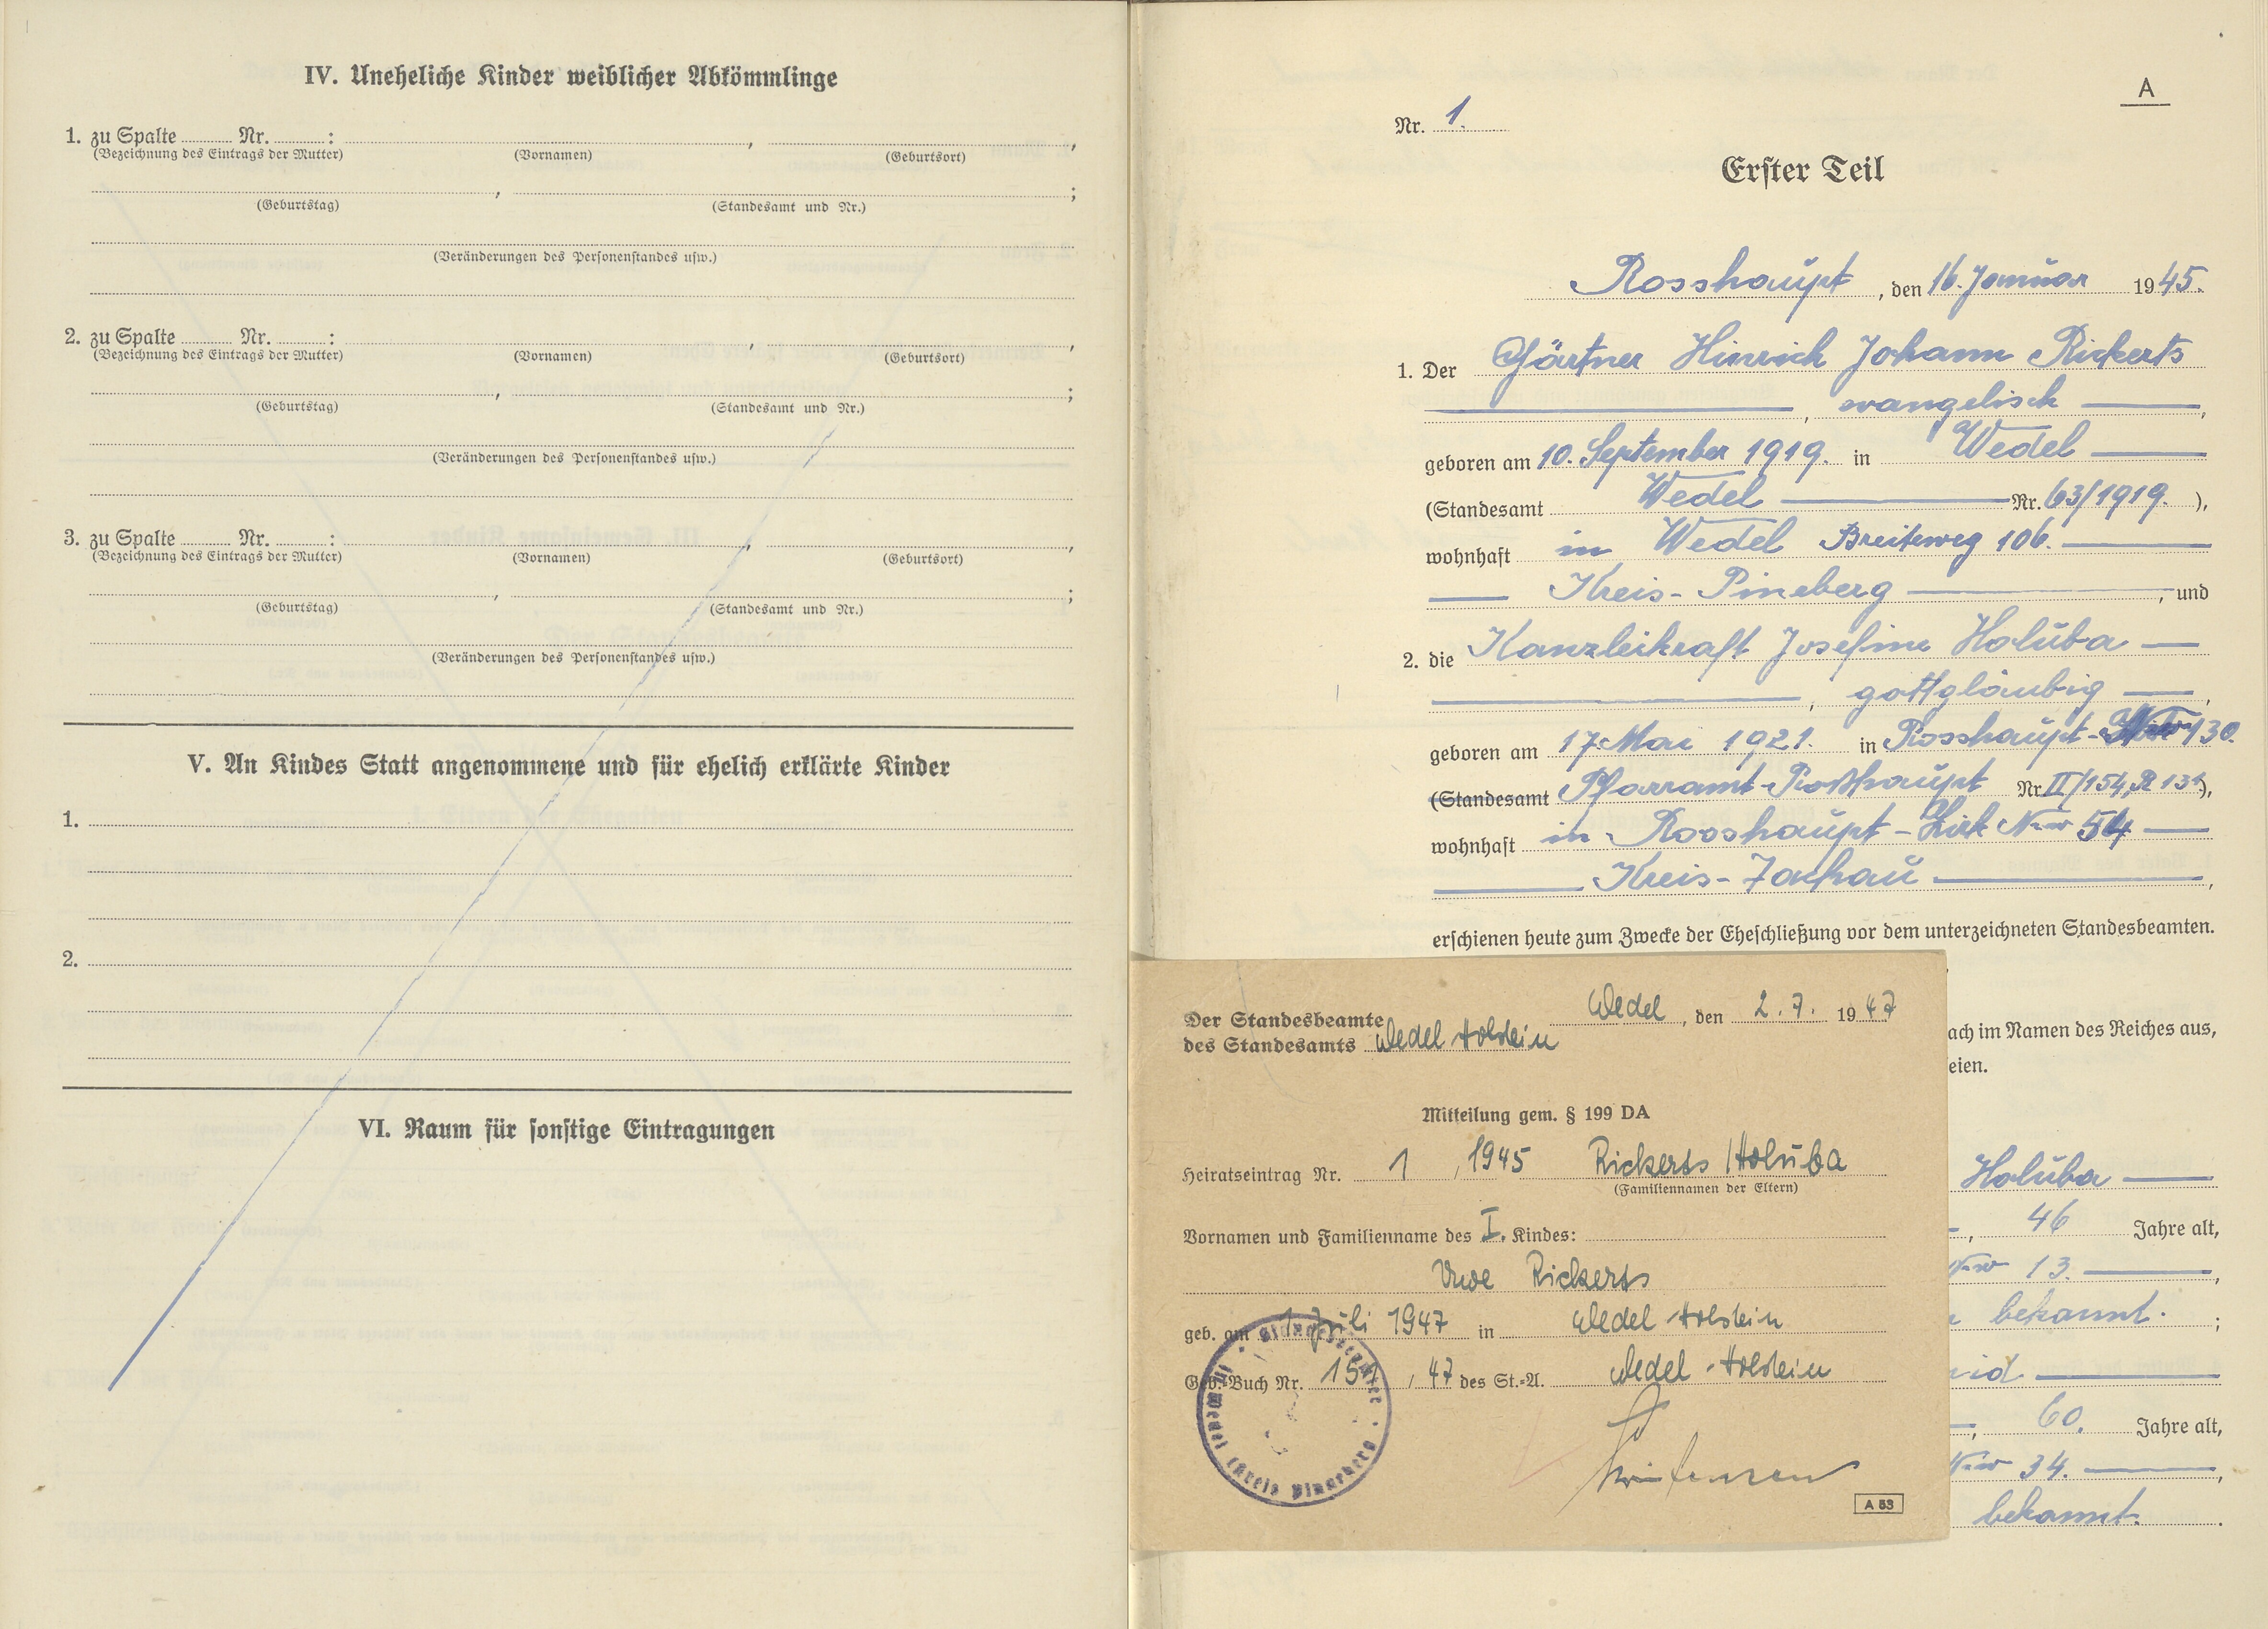 IV. Uneheliche Kinder weiblicher Abkömmlinge
1. zu Spalte ........ Nr. ........ : ........ , ........ ,
(Bezeichnung des Eintrags der Mutter) (Vornamen) (Geburtsort)
........ , ........ ;
(Geburtstag) (Standesamt und Nr.)
(Veränderungen des Personenstandes usw.)
2. zu Spalte ........ Nr. ........ : ........ , ........ ,
(Bezeichnung des Eintrags der Mutter) (Vornamen) (Geburtsort)
........ , ........ ;
(Geburtstag) (Standesamt und Nr.)
(Veränderungen des Personenstandes usw.)
3. zu Spalte ........ Nr. ........ : ........ , ........ ,
(Bezeichnung des Eintrags der Mutter) (Vornamen) (Geburtsort)
........ , ........ ;
(Geburtstag) (Standesamt und Nr.)
(Veränderungen des Personenstandes usw.)
V. An Kindes Statt angenommene und für ehelich erklärte Kinder
1.
2.
VI. Raum für sonstige Eintragungen
A
Nr. 1.
Erster Teil
Rosshaupt, den 16. Januar 1945.
1. Der Gärtner Hinrich Johann Rickerts
, evangelisch ,
geboren am 10. September 1919. in Wedel
(Standesamt Wedel Nr. 63/1919. ),
wohnhaft in Wedel Breiteweg 106.
Kreis-Pineberg , und
2. die Kanzleikraft Josefine Holuba
, gottgläubig ,
geboren am 17 Mai 1921. in Rosshaupt- 130.
(Standesamt Pfarramt-Roßhaupt Nr. II/154, ),
wohnhaft in Rosshaupt - Nr 54
Kreis-Tachau ,
erschienen heute zum Zwecke der Eheschließung vor dem unterzeichneten Standesbeamten.
ach im Namen des Reiches aus,
eien.
Holuba
, 46 Jahre alt,
Nr 13. ,
bekannt. ;
, 60. Jahre alt,
Nr 34. ,
bekannt. .
Der Standesbeamte Wedel, den 2. 7. 1947
des Standesamts Wedel Holstein
Mitteilung gem. § 199 DA
Heiratseintrag Nr. 1 , 1945 Rickerts / Holuba
(Familiennamen der Eltern)
Vornamen und Familienname des I. Kindes:
Uwe Rickerts
geb. am 1 Juli 1947 in Wedel Holstein
Geb.-Buch Nr. , 47 des St.-A. Wedel-Holstein
Standesbeamter
in Wedel (Kreis Pinneberg)
A 53